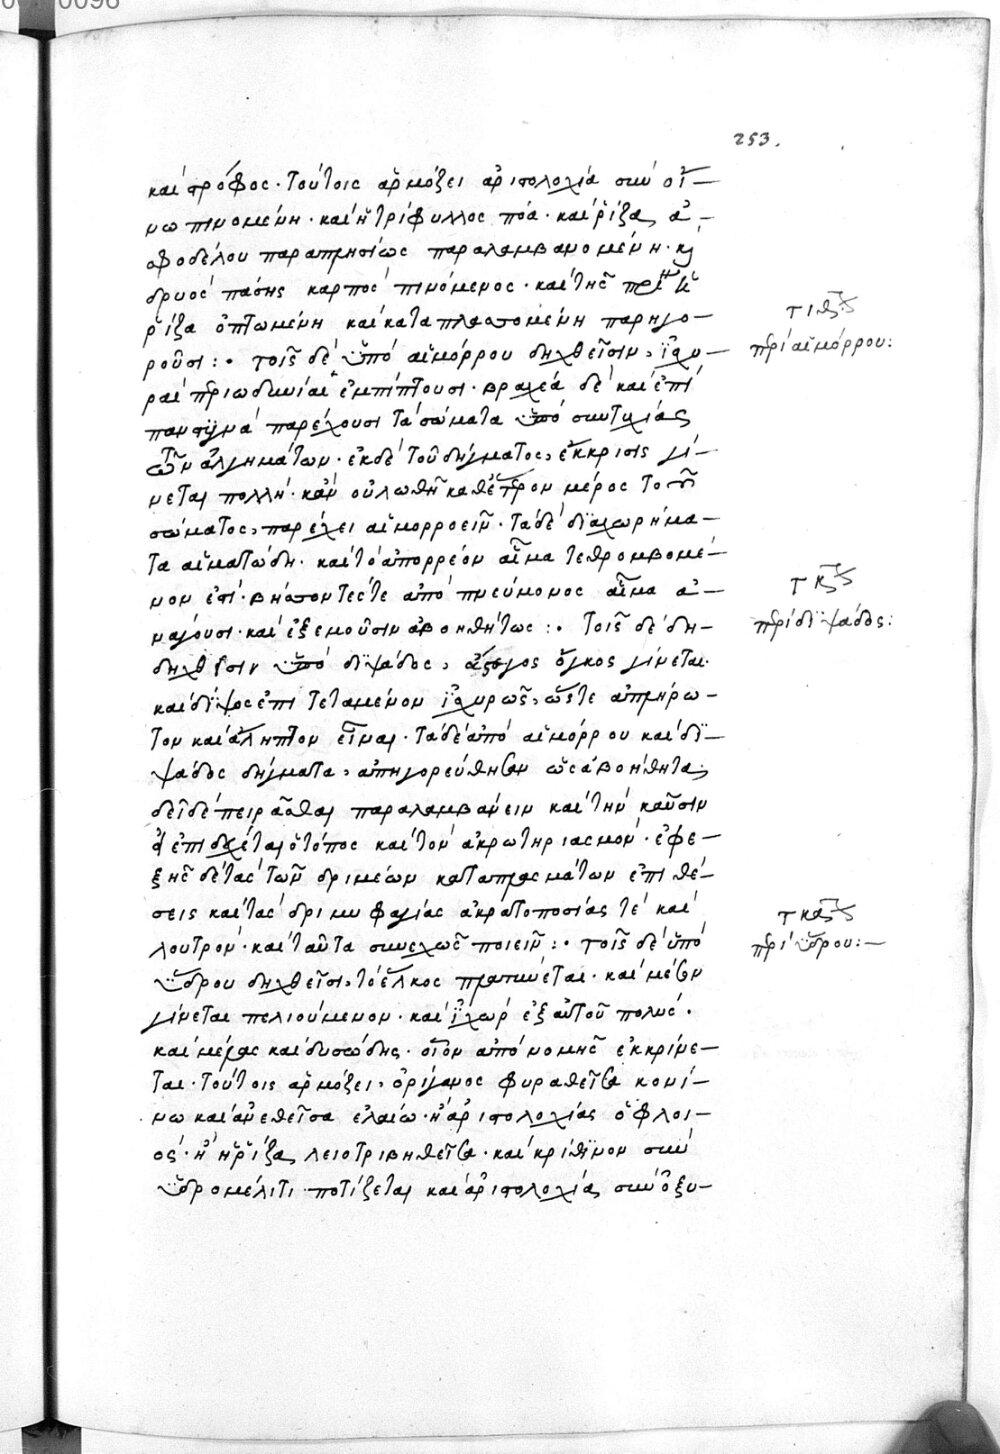 253.
καὶ τρόφος· τούτοις ἁρμόζει ἀριστολοχία σὺν οἴ-
νω πινομένη· καὶ ἡ τρίφυλλος πόα· καὶ ῥίζα ἀ-
σφοδέλου παραπλησίως παραλαμβανομένη· κ
δρυὸς πάσης καρπὸς πινόμενος· καὶ τῆς
ῥίζα ὀπτωμένη καὶ καταπλασσομένη παρηγο-
ροῦσι:· τοῖς δὲ ὑπὸ αἱμόρρου δηχθεῖσιν, ἰσχυ-
ραὶ περιωδυνίαι ἐμπίπτουσι· βραχέα δὲ καὶ ἐπὶ
παρέχουσι τὰ σώματα ὑπὸ συντηξίας
τῶν ἀλγημάτων· ἐκ δὲ τοῦ δήγματος, ἔκκρισις γί-
νεται πολλή· κἂν οὐλωθῆ καθ' ἕτερον μέρος τοῦ
σώματος, παρέχει αἱμορροεῖν· τὰ δὲ διαχωρήμα-
τα αἱματώδη· καὶ τὸ ἀπορρέον αἷμα τεθρομβομέ-
νον ἐστί· βήσσοντές τε ἀπὸ πνεύμονος αἷμα ἀ-
νάγουσι· καὶ ἐξεμοῦσιν ἀβοηθήτως:· Τοῖς δὲ δη-
δηχθεῖσιν ὑπὸ διψάδος, ὄγκος γίνεται·
καὶ δίψος ἐπιτεταμένον ἰσχυρῶς, ὥστε ἀπλήρω-
τον καὶ ἄληπτον εἶναι· Τὰ δὲ ἀπὸ αἱμόρρου καὶ δι-
ψάδος δήγματα, ἀπηγορεύθησαν ὡς ἀβοήθητα·
δεῖ δὲ πειρᾶσθαι παραλαμβάνειν καὶ τὴν καῦσιν
εἰ ἐπιδέχεται ὁ τόπος καὶ τὸν ἀκρωτηριασμόν· ἐφε-
ξῆς δὲ τὰς τῶν δριμέων καταπλασμάτων ἐπιθέ-
σεις καὶ τὰς δριμυφαγίας ἀκρατοποσίας τὲ καὶ
λουτρόν· καὶ ταῦτα συνεχῶς ποιεῖν:· τοῖς δὲ ὑπὸ
ὕδρου δηχθεῖσι, τὸ ἕλκος πλατύνεται· καὶ μεῖζον
γίνεται πελιούμενον· καὶ ἰχὼρ ἐξ αὐτοῦ πολύς·
καὶ μέλας καὶ δυσώδης· οἷον ἀπὸ νομῆς ἐκκρίνε-
ται· Τούτοις ἁρμόζει, ὀρίγανος φυραθεῖσα κονί-
νω καὶ ἀνεθεῖσα ἐλαίω· ἢ ἀριστολοχίας ὁ φλοι-
ός· ἢ ἡ ῥίζα λειοτριβηθεῖσα· καὶ κρίθινον σὺν
ὑδρομέλιτι· ποτίζεται καὶ ἀριστολοχία σὺν ὀξυ-
περὶ αἱμόρρου:
περὶ διψάδος:
περὶ ὕδρου:-